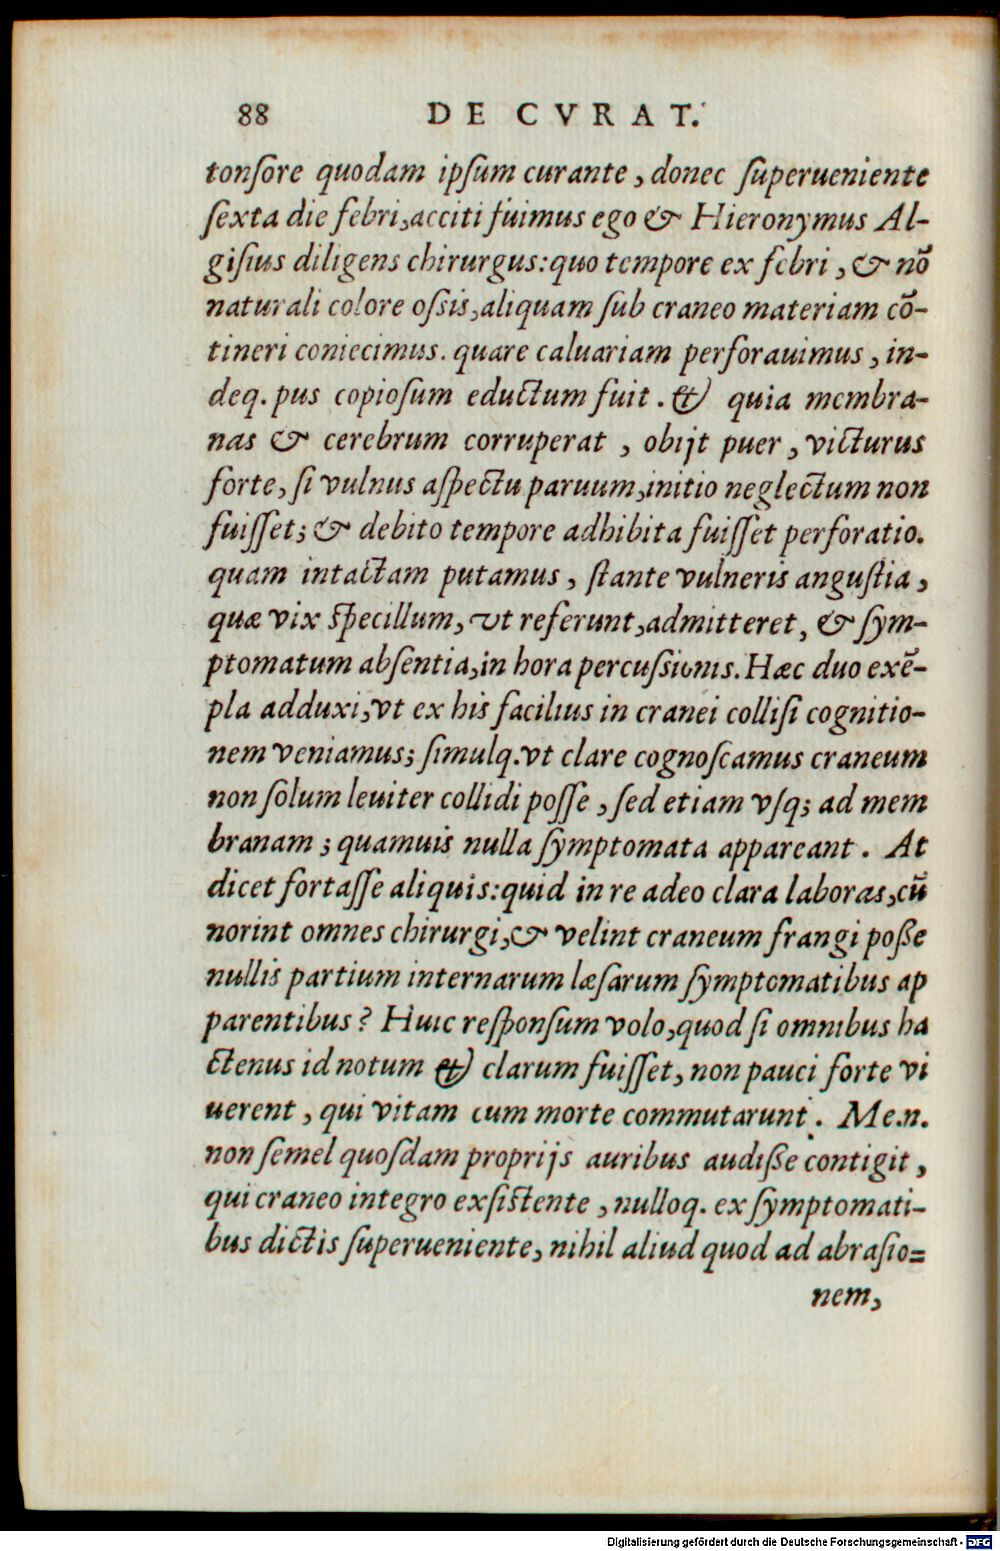 88 DE CVRAT.
tonſore quodam ipſum curante, donec ſuperueniente
ſexta die febri, acciti fuimus ego & Hieronymus Al-
giſius diligens chirurgus: quo tempore ex febri, & nō
naturali colore oſsis, aliquam ſub craneo materiam cō-
tineri coniecimus. quare caluariam perforauimus, in-
deq. pus copioſum eductum fuit. & quia membra-
nas & cerebrum corruperat, obijt puer, victurus
forte, ſi vulnus aſpectu paruum, initio neglectum non
fuiſſet; & debito tempore adhibita fuiſſet perforatio.
quam intactam putamus, ſtante vulneris anguſtia,
quæ vix ſpecillum, vt referunt, admitteret, & ſym-
ptomatum abſentia, in hora percuſsionis. Hæc duo exē-
pla adduxi, vt ex his facilius in cranei colliſi cognitio-
nem veniamus; ſimulq. vt clare cognoſcamus craneum
non ſolum leuiter collidi poſſe, ſed etiam vſq; ad mem
branam; quamuis nulla ſymptomata appareant. At
dicet fortaſſe aliquis: quid in re adeo clara laboras, cū
norint omnes chirurgi, & velint craneum frangi poße
nullis partium internarum læſarum ſymptomatibus ap
parentibus? Huic reſponſum volo, quod ſi omnibus ha
ctenus id notum & clarum fuiſſet, non pauci forte vi
uerent, qui vitam cum morte commutarunt. Me.n.
non ſemel quoſdam proprijs auribus audiße contigit,
qui craneo integro exſiſtente, nulloq. ex ſymptomati-
bus dictis ſuperueniente, nihil aliud quod ad abraſio=
nem,
Digitalisierung gefördert durch die Deutsche Forschungsgemeinschaft - DFG